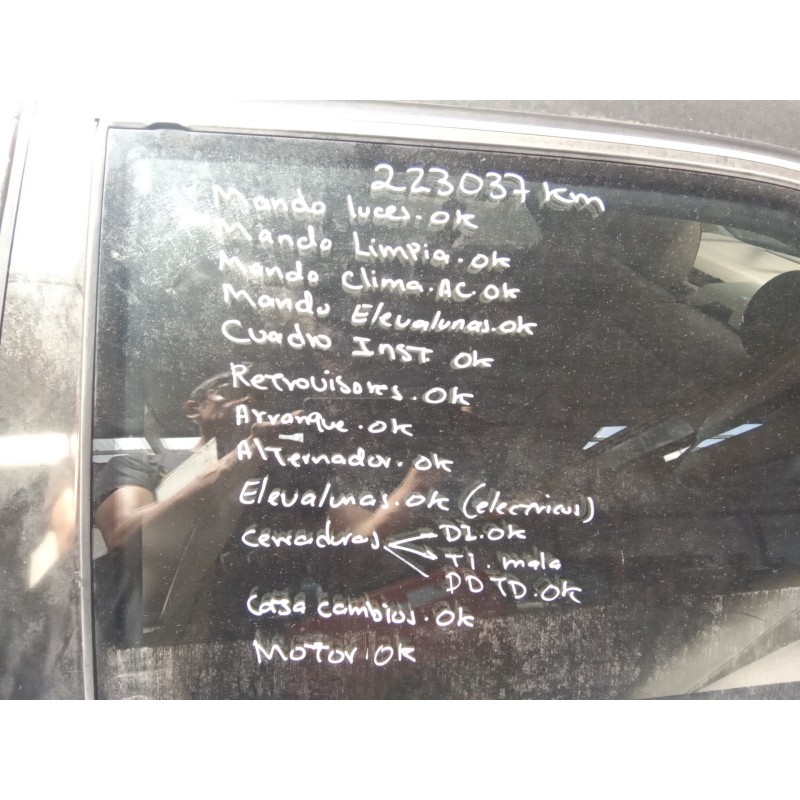 223037 km
Mando luces. ok
Mando Limpia. ok
Mando Clima. AC. ok
Mando Elevalunas. ok
Cuadro INST ok
Retrovisores. ok
Arranque. ok
Alternador. ok
Elevalunas. ok (electricos)
Cerraduras DI. ok
TI. mala
DD TD. ok
Casa cambios. ok
Motor. OK